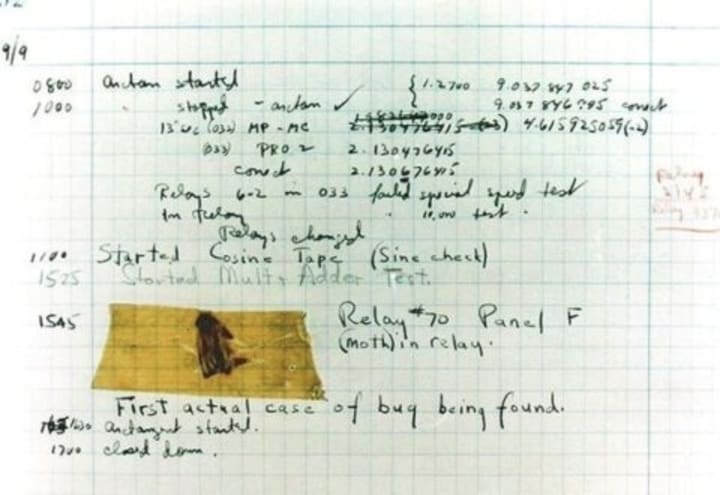 9/9
0800 Antan started { 1.2700 9.037 847 025
1000 " stopped - antan ✓ 9.037 846 795 conect
13"uc (032) MP - MC 2.130476415 (-3) 4.615925059(-2)
(033) PRO 2 2.130476415
conect 2.130676415
Relays 6-2 in 033 failed special speed test
In Relay " 10,000 test.
Relays changed
1100 Started Cosine Tape (Sine check)
1525 Started Mult + Adder Test.
1545 Relay #70 Panel F
(moth) in relay.
First actual case of bug being found.
1630 antangent started.
1700 closed down.